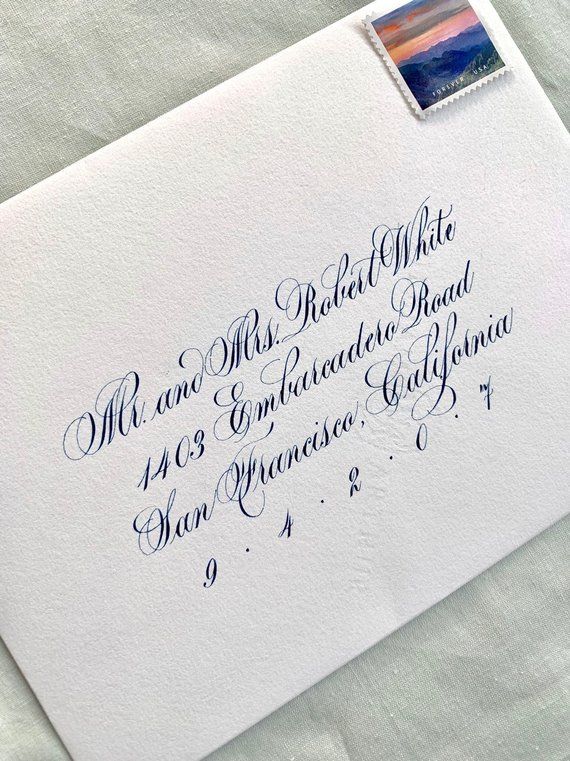 FOREVER USA
Mr. and Mrs. Robert White
1403 Embarcadero Road
San Francisco, California
9 · 4 · 2 · 0 · 7